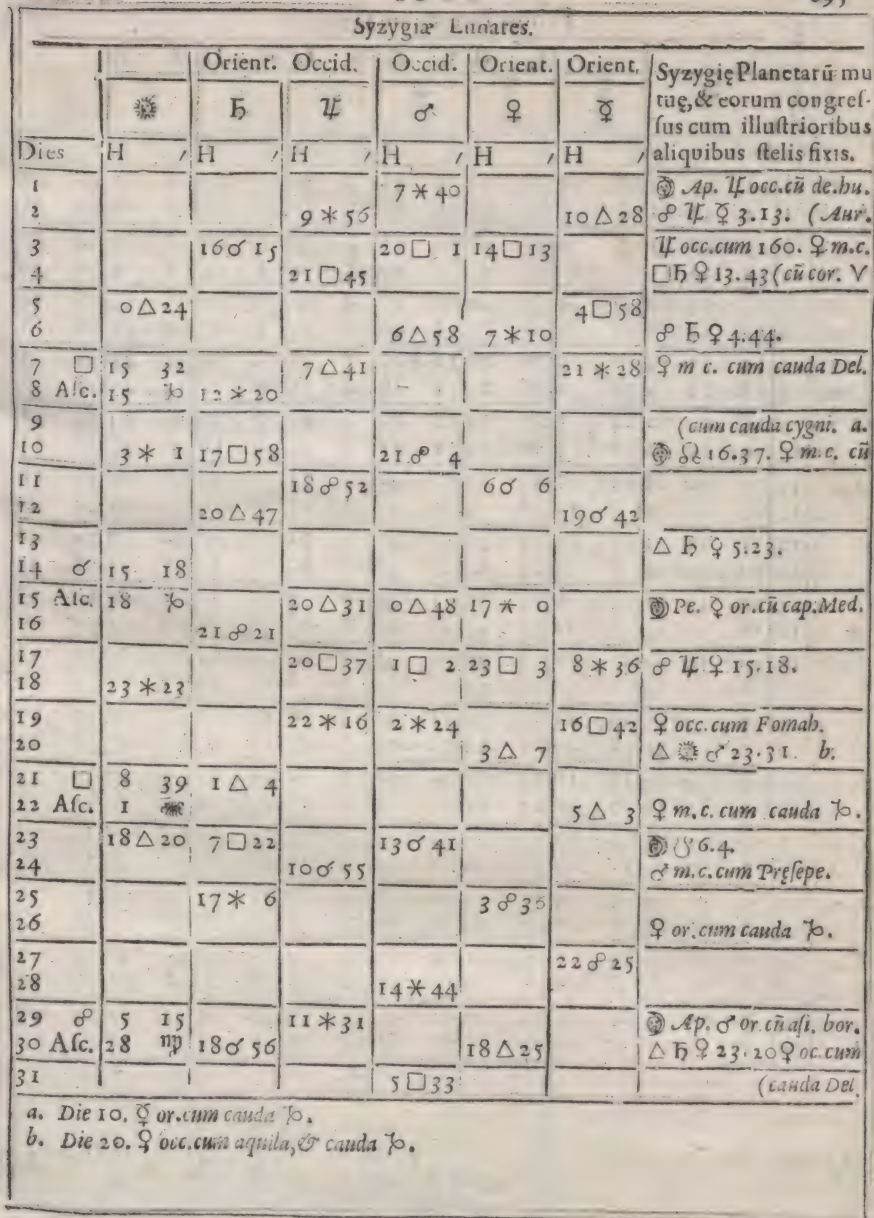 Syzygiæ Lunares.
Orient. Occid. Occid. Orient. Orient. Syzygię Planetarũ mu
☉ ♄ ♃ ♂ ♀ ☿ tuę, & eorum congreſ-
ſus cum illuſtrioribus
Dies H ′ H ′ H ′ H ′ H ′ H ′ aliquibus ſtelis fixis.
1 7 ⚹ 40 ☽ Ap. ♃ occ. cũ de. hu.
2 9 ⚹ 56 10 △ 28 ☍ ♃ ☿ 3.13. (Aur.
3 16 ☌ 15 20 □ 1 14 □ 13 ♃ occ. cum 160. ♀ m.c.
4 21 □ 45 □ ♄ ♀ 13.43 (cũ cor. V
5 0 △ 24 4 □ 58
6 6 △ 58 7 ⚹ 10 ☍ ♄ ♀ 4.44.
7 □ 15 32 7 △ 41 21 ⚹ 28 ♀ m c. cum cauda Del.
8 Aſc. 15 ♑ 12 ⚹ 20
9 (cum cauda cygni. a.
10 3 ⚹ 1 17 □ 58 21 ☍ 4 ☽ ☊ 16.37. ♀ m.c. cũ
11 18 ☍ 52 6 ☌ 6
12 20 △ 47 19 ☌ 42
13 △ ♄ ☿ 5.23.
14 ☌ 15 18
15 Aſc. 18 ♑ 20 △ 31 0 △ 48 17 ⚹ 0 ☽ Pe. ☿ or. cũ cap. Med.
16 21 ☍ 21
17 20 □ 37 1 □ 2 23 □ 3 8 ⚹ 36 ☍ ♃ ♀ 15.18.
18 23 ⚹ 23
19 22 ⚹ 16 2 ⚹ 24 16 □ 42 ♀ occ. cum Fomah.
20 3 △ 7 △ ☉ ♂ 23.31. b.
21 □ 8 39 1 △ 4
22 Aſc. 1 ♒ 5 △ 3 ♀ m. c. cum cauda ♑.
23 18 △ 20 7 □ 22 13 ☌ 41 ☽ ☋ 6.4.
24 10 ☌ 55 ♂ m. c. cum Pręſepe.
25 17 ⚹ 6 3 ☍ 36
26 ♀ or. cum cauda ♑.
27 22 ☍ 25
28 14 ⚹ 44
29 ☍ 5 15 11 ⚹ 31 ☽ Ap. ♂ or. cũ aſi. bor.
30 Aſc. 28 ♍ 18 ☌ 56 18 △ 25 △ ♄ ☿ 23.20 ♀ oc. cum
31 5 □ 33 (cauda Del.
a. Die 10. ☿ or. cum cauda ♑.
b. Die 20. ♀ occ. cum aquila, & cauda ♑.